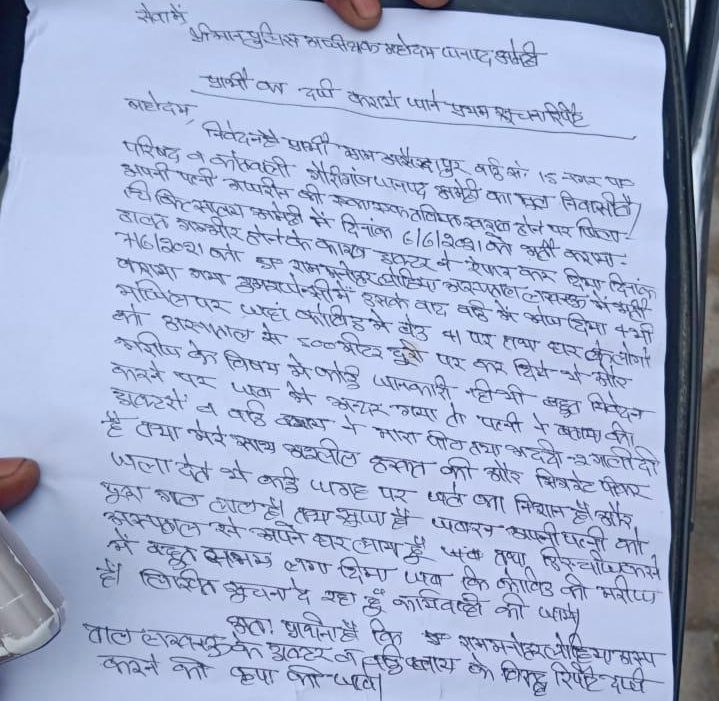 सेवा में
श्रीमान पुलिस अधीक्षक महोदय जनपद अमेठी
प्रार्थी का दर्ज कराये जाने प्रथम सूचना रिपोर्ट
महोदय,
निवेदन है प्रार्थी ग्राम पुर वार्ड सं. 15 नगर पा
परिषद व कोतवाली गौरीगंज जनपद अमेठी का मूल निवासी है/
अपनी पत्नी की एकाएक तबियत खराब होने पर जिला
चिकित्सालय अमेठी में दिनांक 6/6/2021 को भर्ती कराया
हालत गम्भीर होने के कारण डाक्टर ने रेफर कर दिया दिनांक
7/6/2021 को डा राममनोहर लोहिया अस्पताल लखनऊ में भर्ती
कराया गया इमरजेन्सी में इसके बाद वार्ड में भेज दिया 4 थी
मंजिल पर जहां कोविड में बेड 41 पर तथा घर के लोगों
को अस्पताल से 500 मीटर दूरी पर कर दिये थे और
मरीज के विषय में कोई जानकारी नहीं थी बहुत निवेदन
करने पर जब में अन्दर गया तो पत्नी ने बताया की
डाक्टरों व वार्ड ब्वाय ने मारा पीटा तथा भद्दी 2 गाली दी
है तथा मेरे साथ अश्लील हरकत की और सिगरेट पीकर
जला देते थे कई जगह पर जले का निशान है और
पूरा गाल लाल है। तथा सूजा है जबरन अपनी पत्नी को
अस्पताल से अपने घर लाया हूँ जब तथा डिस्चार्ज करने
में बहुत समय लगा दिया जब कि कोविड की मरीज
है। लिखित सूचना दे रहा हूँ कार्यवाही की जाय।
अतः प्रार्थना है कि डा राममनोहर लोहिया अस्प
ताल लखनऊ के डाक्टर व वार्ड ब्वाय के विरुद्ध रिपोर्ट दर्ज
करने की कृपा की जाय।